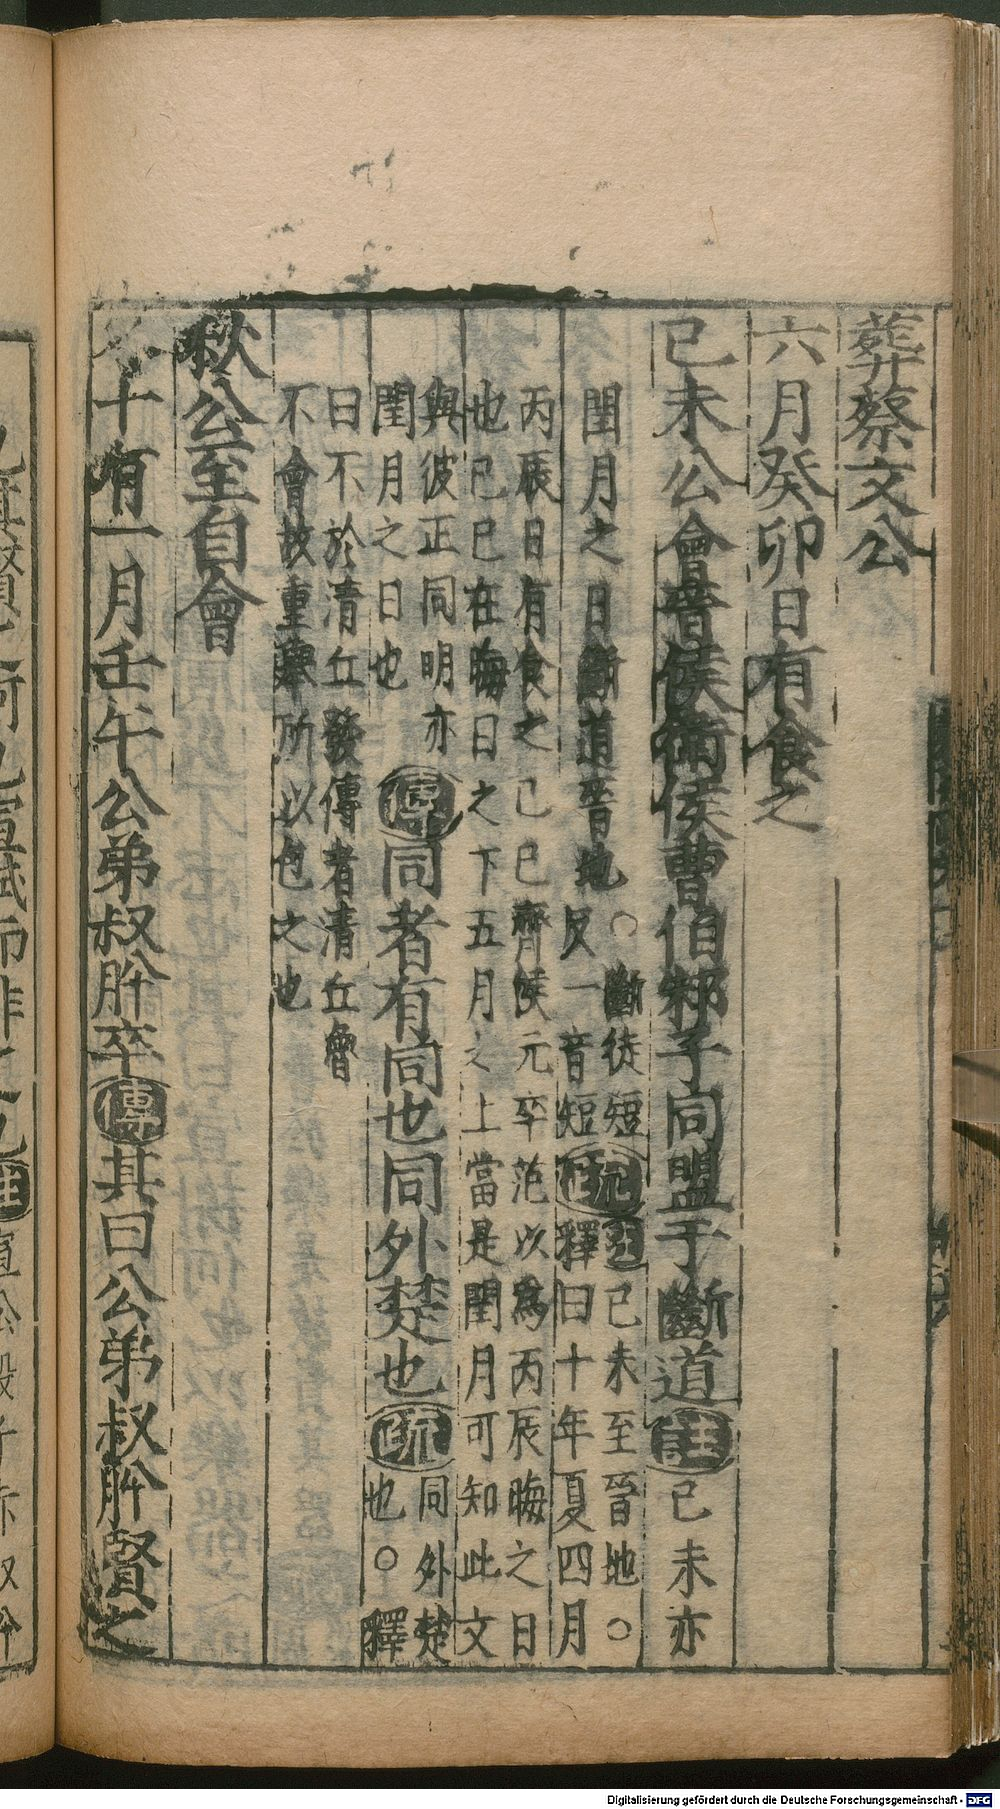 葬蔡文公
六月癸卯日有食之
己未公會晉侯衛侯曹伯邾子同盟于斷道㊟己未亦
閏月之日斷道晉地○斷徒短
反一音短疏注己未至晉地○
釋曰十年夏四月
丙辰日有食之己巳齊侯元卒范以為丙辰晦之日
也己巳在晦日之下五月之上當是閏月可知此文
與彼正同明亦
閏月之日也
傳同者有同也同外楚也疏同外楚
也○釋
曰不於清丘發傳者清丘魯
不會故重舉所以包之也
秋公至自會
冬十有一月壬午公弟叔肸卒傳其曰公弟叔肸賢之
Digitalisierung gefördert durch die Deutsche Forschungsgemeinschaft - DFG